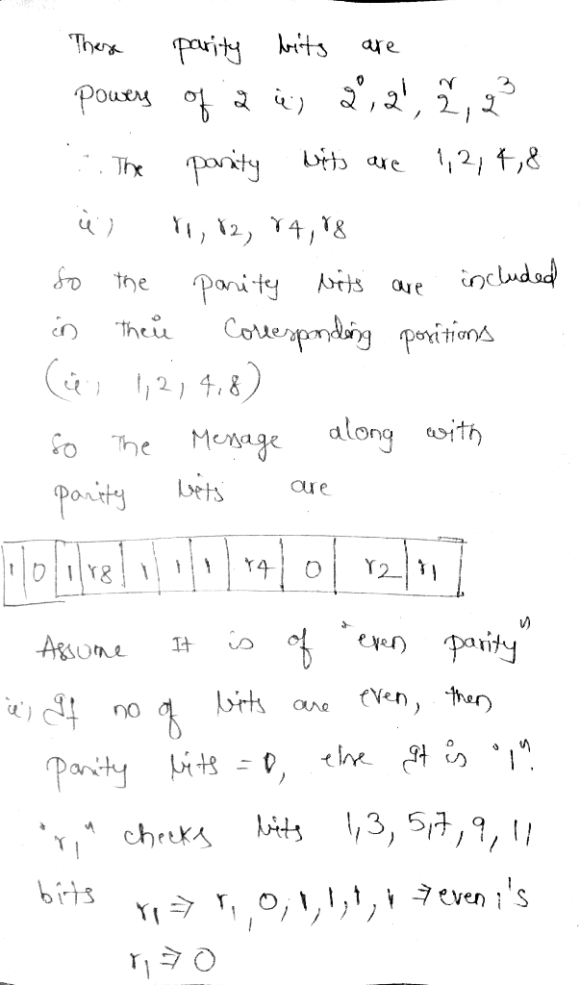 These parity bits are
powers of 2 ie; 2⁰, 2¹, 2², 2³
∴ The parity bits are 1, 2, 4, 8
ie) r1, r2, r4, r8
So the parity bits are included
in their Corresponding positions
(ie, 1, 2, 4, 8)
So The Message along with
parity bits are
1 | 0 | 1 | r8 | 1 | 1 | 1 | r4 | 0 | r2 | r1
Assume It is of "even parity"
ie, If no of bits are even, then
parity bits = 0, else It is "1".
"r1" checks bits 1, 3, 5, 7, 9, 11
bits r1 ⇒ r1, 0, 1, 1, 1, 1 ⇒ even 1's
r1 ⇒ 0